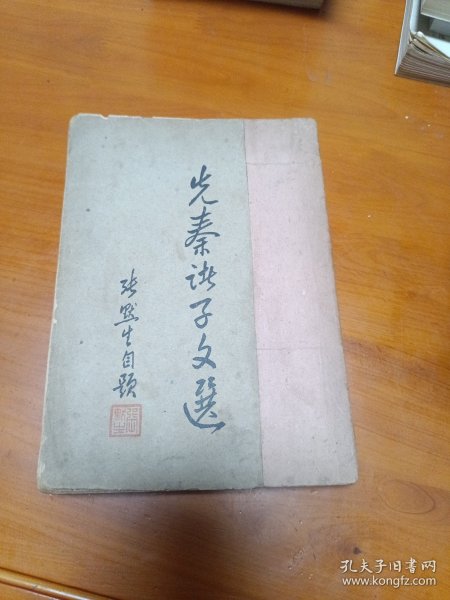 先秦诸子文選
張默生自題
孔夫子旧书网
www.kongfz.com